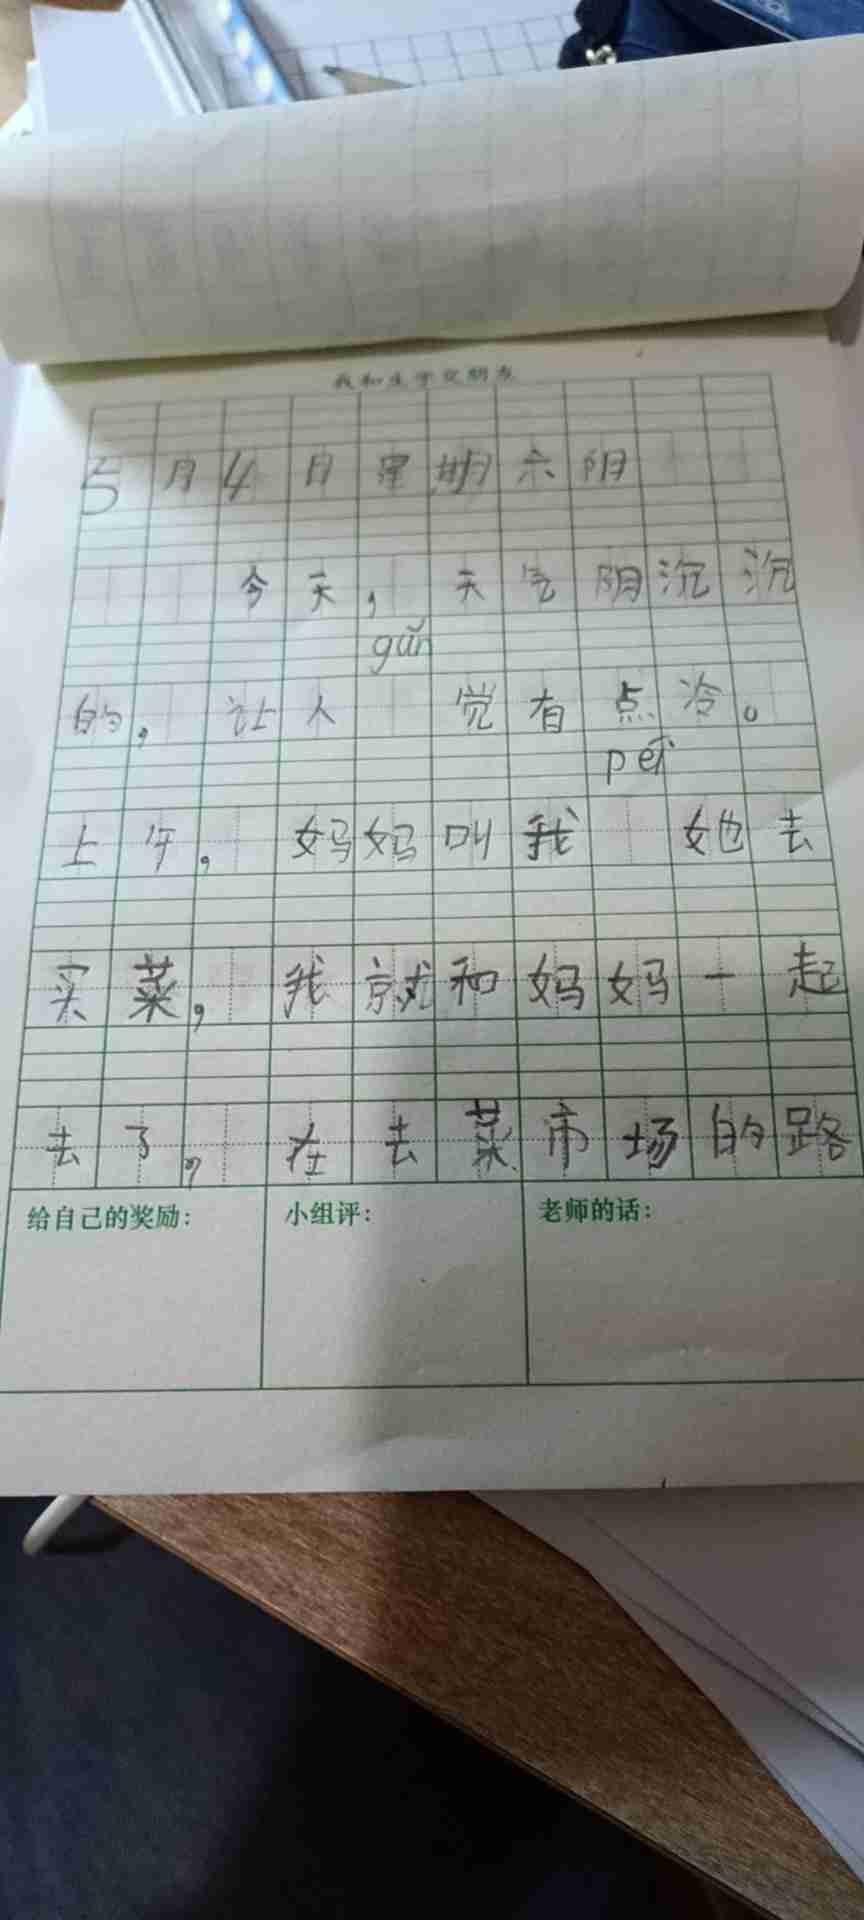 我和生字交朋友
5月4日星期六阴
今天，天气阴沉沉
gǎn
的，让人 觉有点冷。
péi
上午，妈妈叫我 她去
买菜，我就和妈妈一起
去了，在去菜市场的路
给自己的奖励： 小组评： 老师的话：